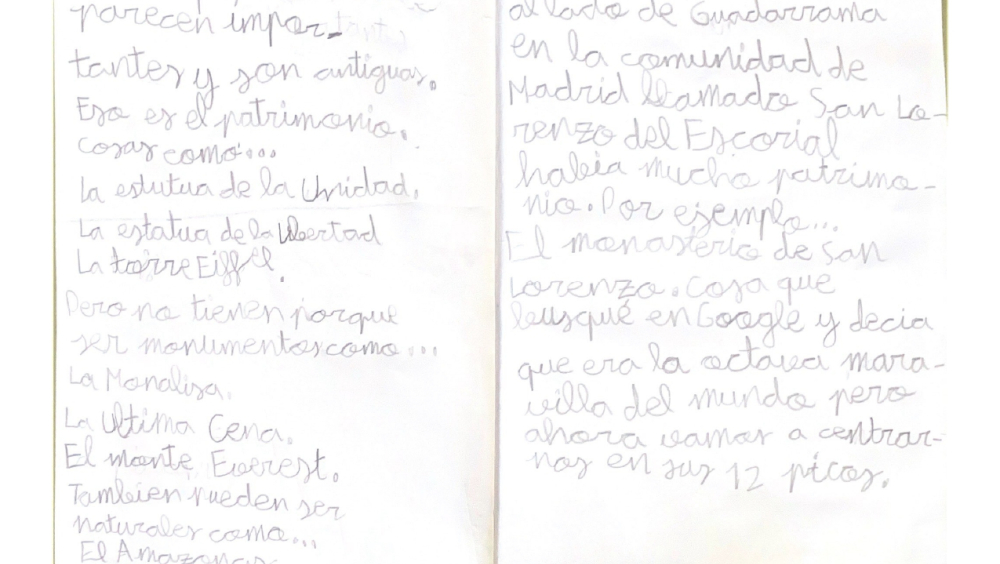 parecen impor-
tantes y son antiguas.
Eso es el patrimonio.
cosas como...
La estutua de la Unidad.
La estatua de la libertad
La torre Eiffel.
Pero no tienen porque
ser monumentos como...
La Monalisa.
La Ultima Cena.
El monte Everest.
Tambien pueden ser
naturales como...
El Amazonas
al lado de Guadarrama
en la comunidad de
Madrid llamado San Lo-
renzo del Escorial
habia mucho patrimo-
nio. Por ejemplo...
El monasterio de San
Lorenzo. Cosa que
busqué en Google y decia
que era la octava mara-
villa del mundo pero
ahora vamos a centrar-
nos en sus 12 picos.